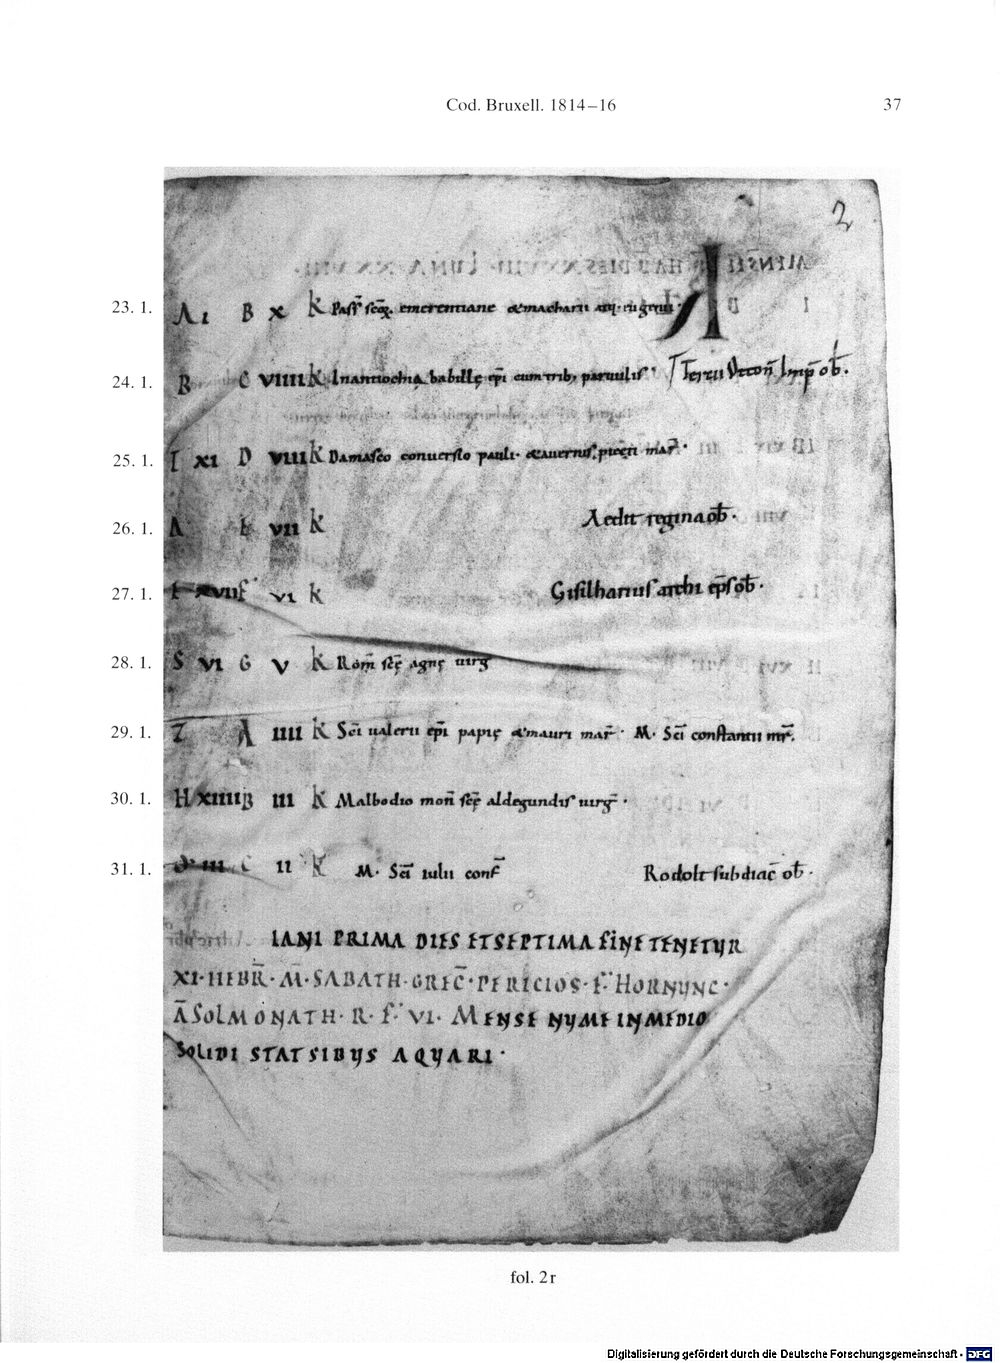 Cod. Bruxell. 1814–16 37
2
23. 1. B x k Pass̄ scōꝝ emerentiane & macharii atq; eugenii ·
24. 1. B C VIIII k In antiochia babillę ep̄i cum trib; paruulis · Tercii Otton̄ Imp̄ ob̄ .
25. 1. XI D VIII k Damasco conuersio pauli · & auernis, piecti mar̄ ·
26. 1. A VII k Aedit regina ob̄ ·
27. 1. VI k Gisilharius archi ep̄s ob̄ ·
28. 1. S VI G V k Rom̄ scę̄ agnę uirḡ
29. 1. A IIII k Sc̄i ualerii ep̄i papię & mauri mar̄ · M · Sc̄i constantii mr̄.
30. 1. H XIIII B III k Malbodio mon̄ scę̄ aldegundis uirḡ ·
31. 1. III C II k M · Sc̄i iulii conf̄ Rodolt subdiac̄ ob̄ ·
IANI PRIMA DIES ET SEPTIMA FINE TENETUR
XI · HEBR̄ · M̄ · SABATH · GREC̄ · PERICIOS · F̄ · HORNUNC ·
Ā SOLMONATH · R · F · VI · MENSE NUME IN MEDIO
SOLIDI STAT SIDUS AQUARI ·
fol. 2r
Digitalisierung gefördert durch die Deutsche Forschungsgemeinschaft - DFG